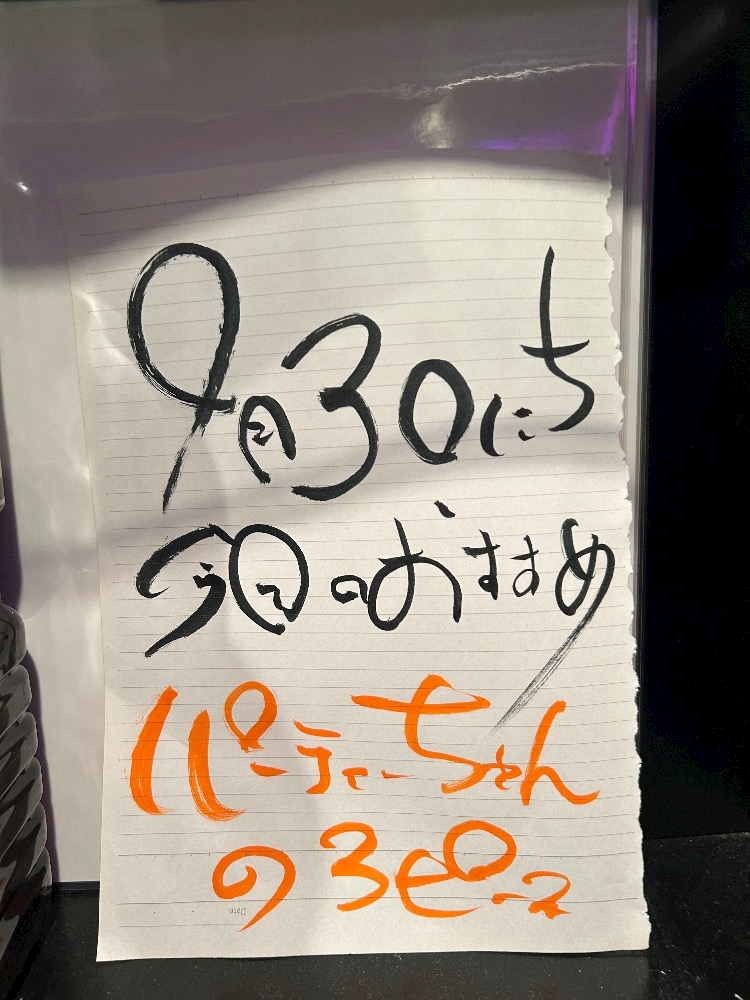 9月30にち
今日のおすすめ
パーティーちゃん
の3ピース
Date